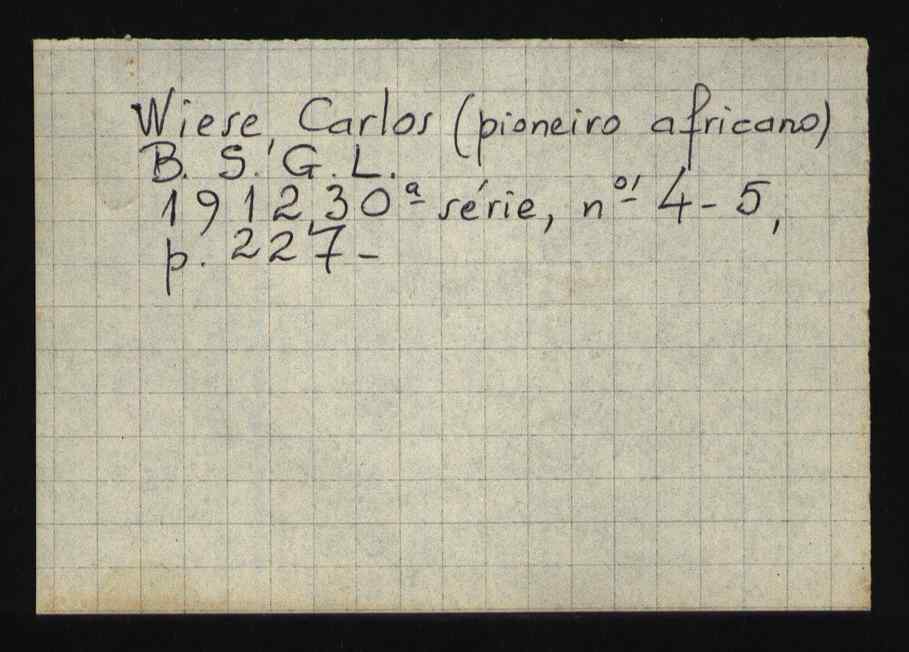 Wiese, Carlos (pioneiro africano)
B. S. G. L.
1912, 30ª série, nos 4-5,
p. 227-